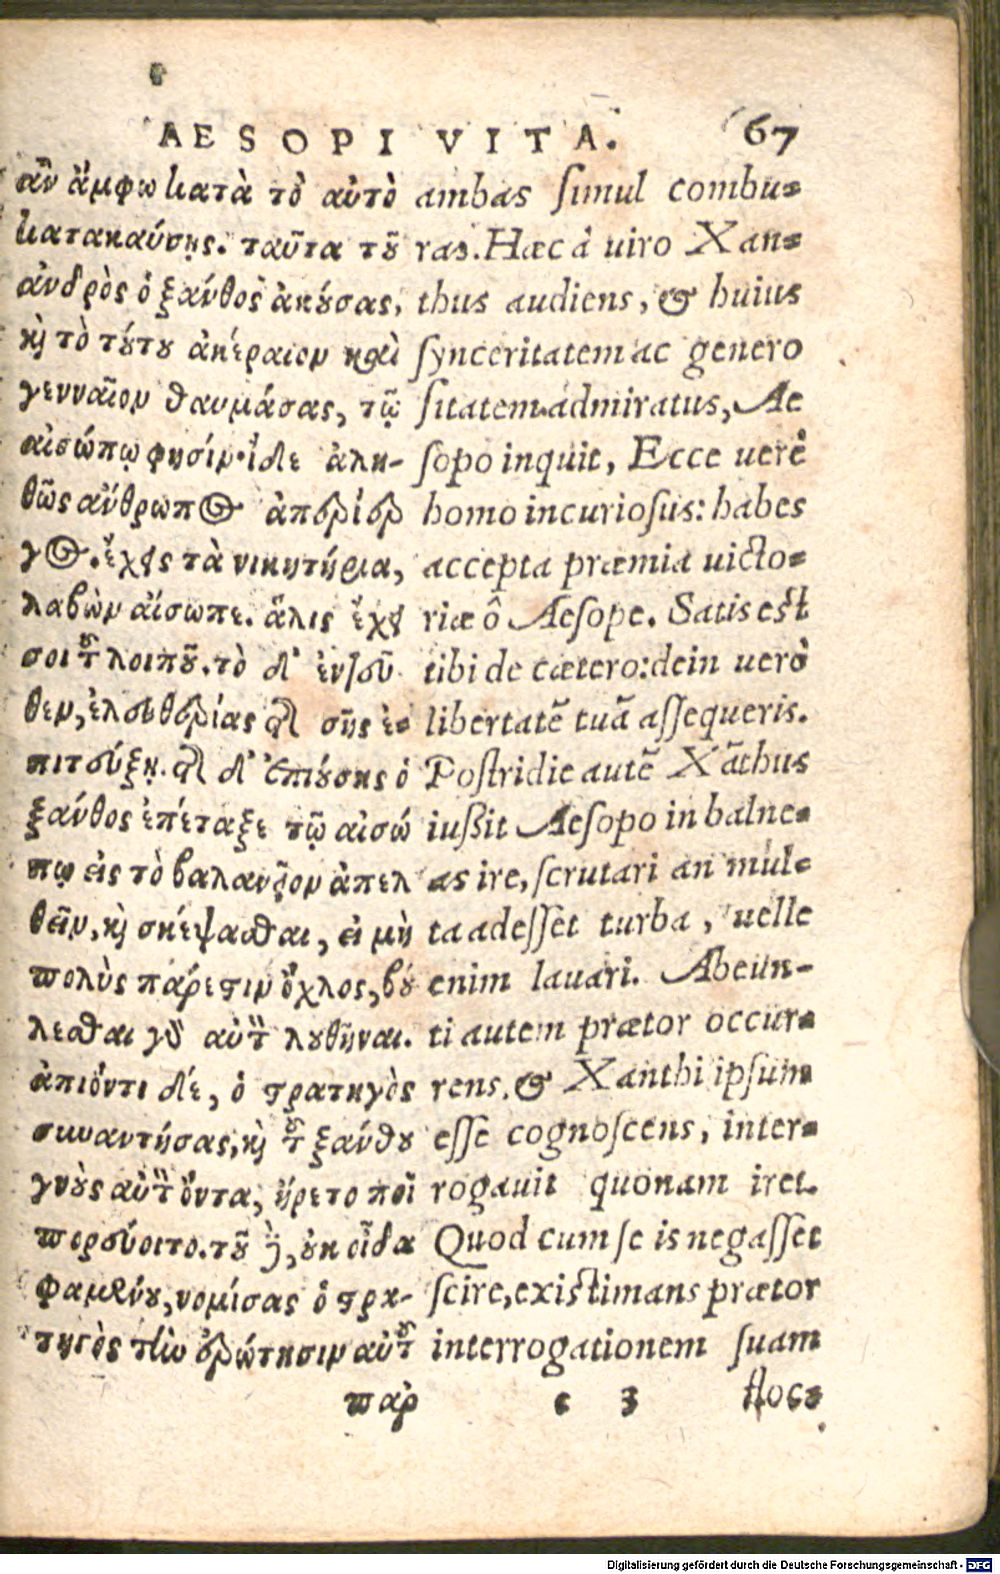 AESOPI VITA. 67
ἂν ἄμφω κατὰ τὸ αὐτὸ
κατακαύσῃς. ταῦτα τοῦ
ἀνδρὸς ὁ ξάνθος ἀκούσας,
καὶ τὸ τούτου ἀκέραιον καὶ
γενναῖον θαυμάσας, τῷ
αἰσώπῳ φησίν· ἴδε ἀλη-
θῶς ἄνθρωπος ἀπερίερ
γος. ἔχεις τὰ νικητήρια,
λαβὼν αἴσωπε. ἅλις ἔχει
σοι τοῦ λοιποῦ. τὸ δ' ἐντεῦ
θεν, ἐλευθερίας τῆς σῆς ἐ-
πιτεύξῃ. τῆς δ' ἐπιούσης ὁ
ξάνθος ἐπέταξε τῷ αἰσώ
πῳ εἰς τὸ βαλανεῖον ἀπελ
θεῖν, καὶ σκέψασθαι, εἰ μὴ
πολὺς πάρεστιν ὄχλος, βού
λεσθαι γὰρ αὐτὸν λουθῆναι.
ἀπιόντι δὲ, ὁ στρατηγὸς
συναντήσας, καὶ τοῦ ξάνθου
γνοὺς αὐτὸν ὄντα, ἤρετο ποῖ
πορεύοιτο. τοῦ δὲ, οὐκ οἶδα
φαμένου, νομίσας ὁ στρα-
τηγὸς τὴν ἐρώτησιν αὐτοῦ
παρ
ambas simul combu-
ras. Hæc à uiro Xan-
thus audiens, & huius
synceritatem ac genero
sitatem admiratus, Ae
sopo inquit, Ecce uerè
homo incuriosus: habes
accepta præmia uicto-
riæ ô Aesope. Satis est
tibi de cætero: dein uerò
libertatẽ tuã assequeris.
Postridie autẽ Xãthus
iussit Aesopo in balne-
as ire, scrutari an mul-
ta adesset turba, uelle
enim lauari. Abeun-
ti autem prætor occur-
rens, & Xanthi ipsum
esse cognoscens, inter-
rogauit quonam iret.
Quod cum se is negasset
scire, existimans prætor
interrogationem suam
e 3 floc-
Digitalisierung gefördert durch die Deutsche Forschungsgemeinschaft - DFG